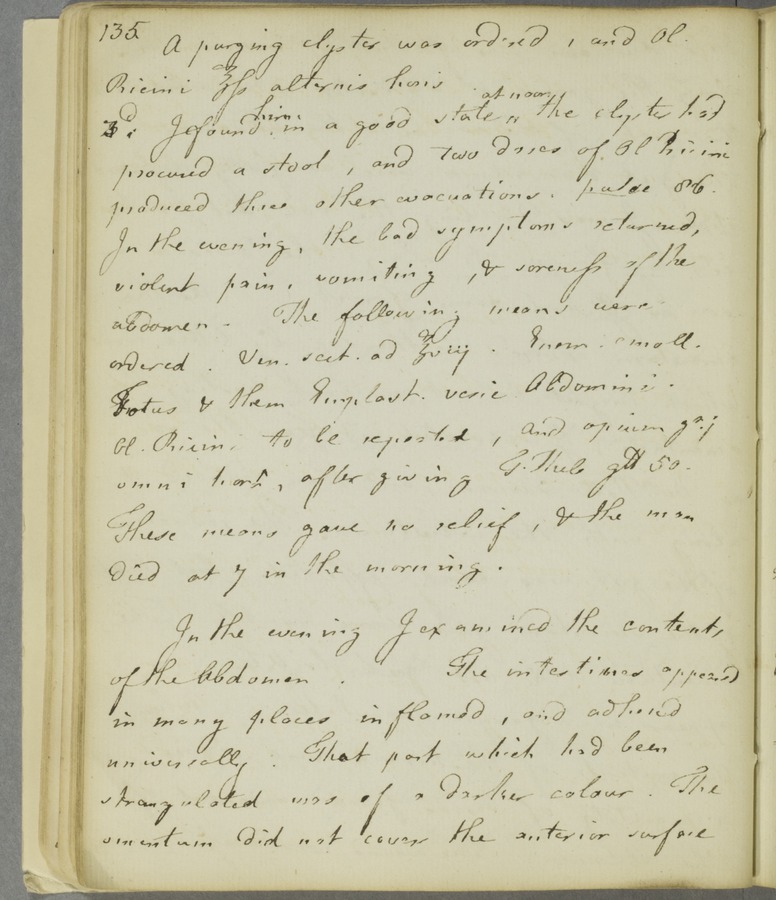 135
A purging clyster was ordered, and Ol.
Ricini ℥ſs alternis horis
3d: I found him in a good state at noon, the clyster had
procured a stool, and two doses of Ol Ricini
produced three other evacuations. pulse 86.
In the evening, the bad symptoms returned,
violent pain, vomiting, & soreneſs of the
abdomen. The following means were
ordered. Ven. sect. ad ℥viij. Enem. emoll.
Fotus & then Emplast. vesic Abdomini.
Ol. Ricini to be repeated, and opium gr.j
omni horâ, after giving T. Theb gtt 50.
These means gave no relief, & the man
died at 7 in the morning.
In the evening I examined the contents
of the Abdomen. The intestines appeared
in many places inflamed, and adhered
universally. That part which had been
strangulated was of a darker colour. The
omentum did not cover the anterior surface